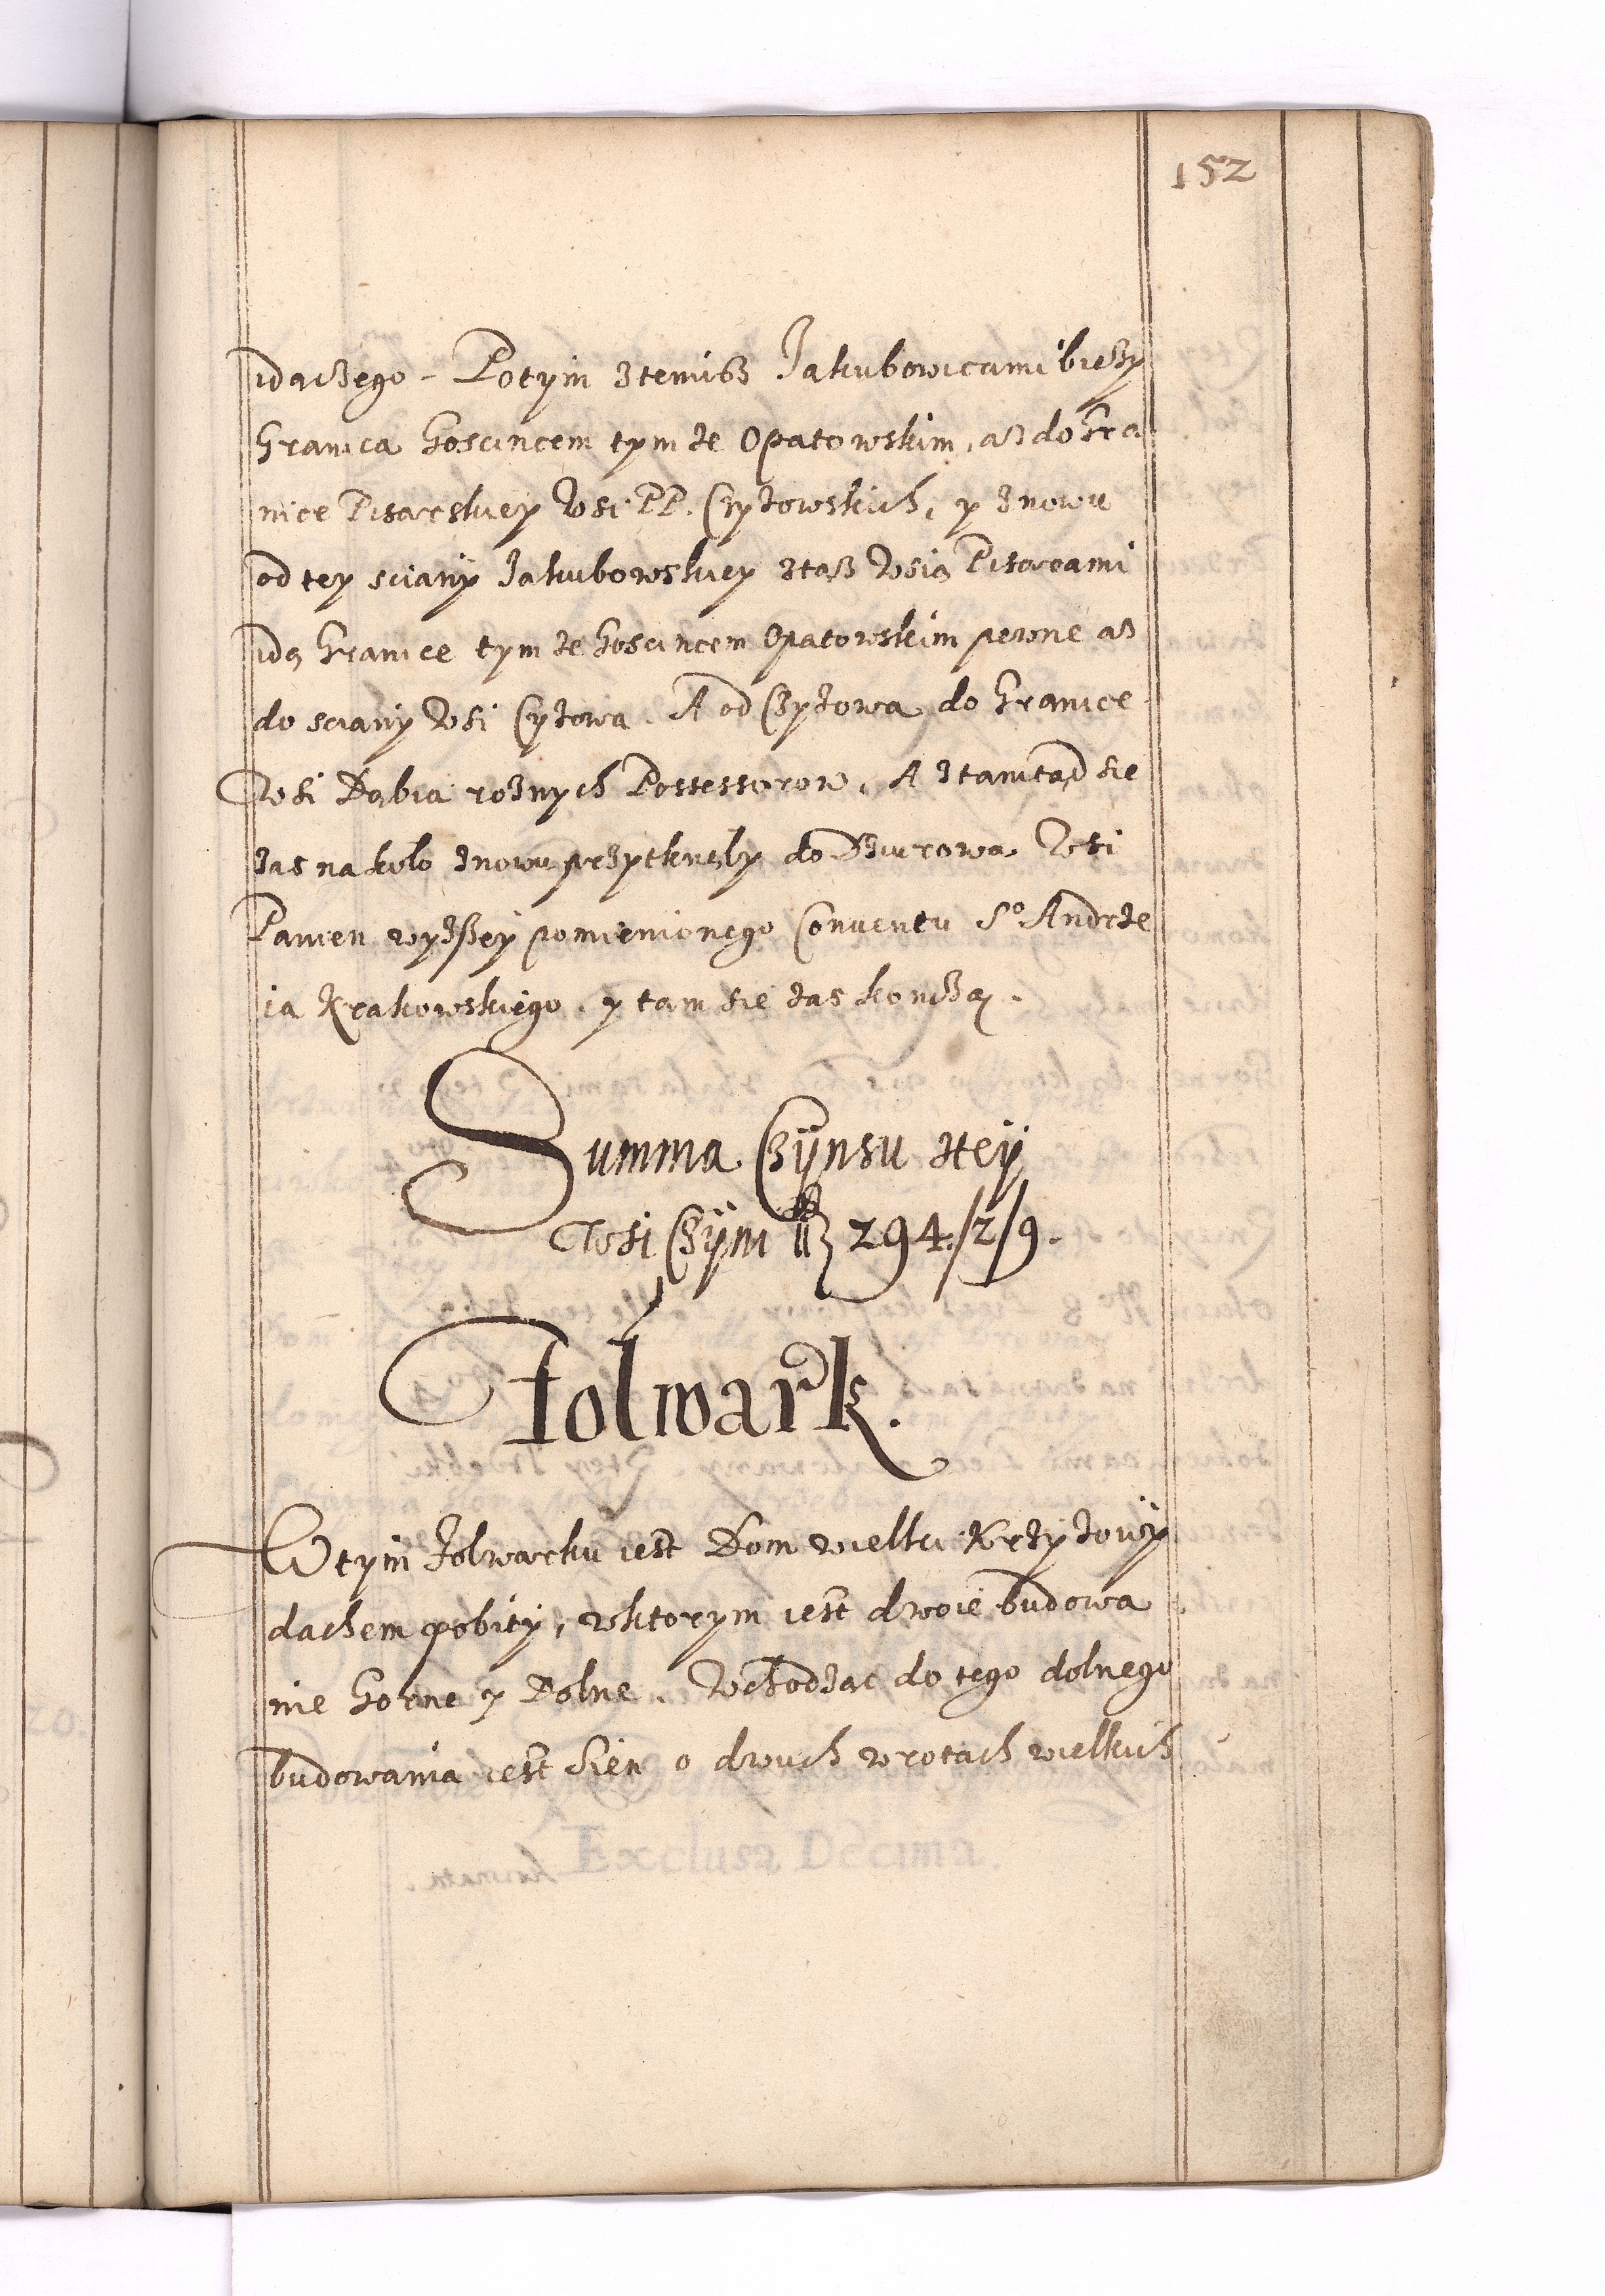 152
idaczego - Potym ztemisz Jakubowicami bieszy
Granica Goscincem tym ze Opatowskim, asz do Gra
nice Pisarskiey Wsi PP. Czyzowskich, y znowu
od tey sciany Jakubowskiey ztasz Wsią Pisarcami
idą Granice tym ze Goscincem Opatowskim pewne asz
do sciany Wsi Cyzowa. A od Czyzowa do Granice
Wsi Dąbia roznych Possessorow, A ztamtąd sie
zas na koło znowu przytknęły do Dziurowa Wsi
Panien wyzszey pomienionego Conventu So Andrze
ia Krakowskiego, y tam sie zas konczą.
Summa Czynsu ztey
Wsi Czyni 294./2/9.
Folwark.
W tym Folwarku iest Dom wielki Krzyzowy
dachem pobity, w ktorym iest dwoie budowa
nie Gorne y Dolne. Wchodzac do tego dolnego
budowania iest Sien o dwuch wrotach wielkich